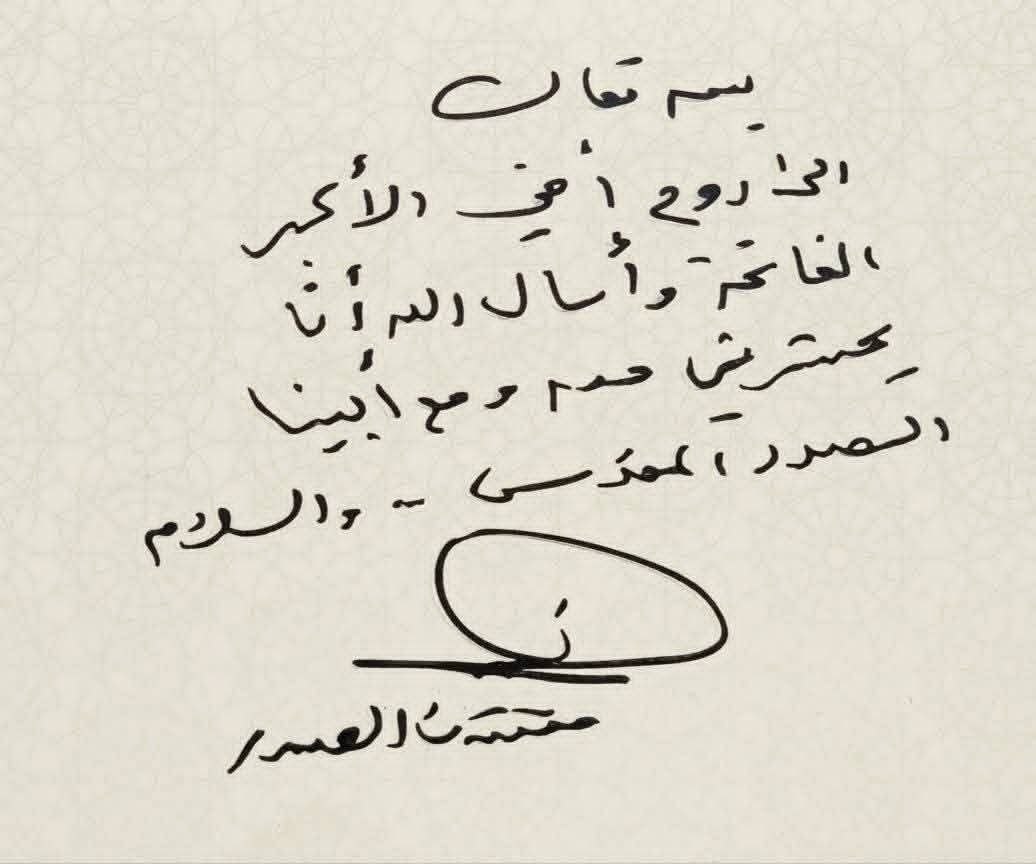 بسمه تعالى
الى روح أخي الأكبر
الفاتحة وأسأل الله أنْ
يحشرني معه ومع أبينا
الصدر المقدس .. والسلام
مقتدى الصدر